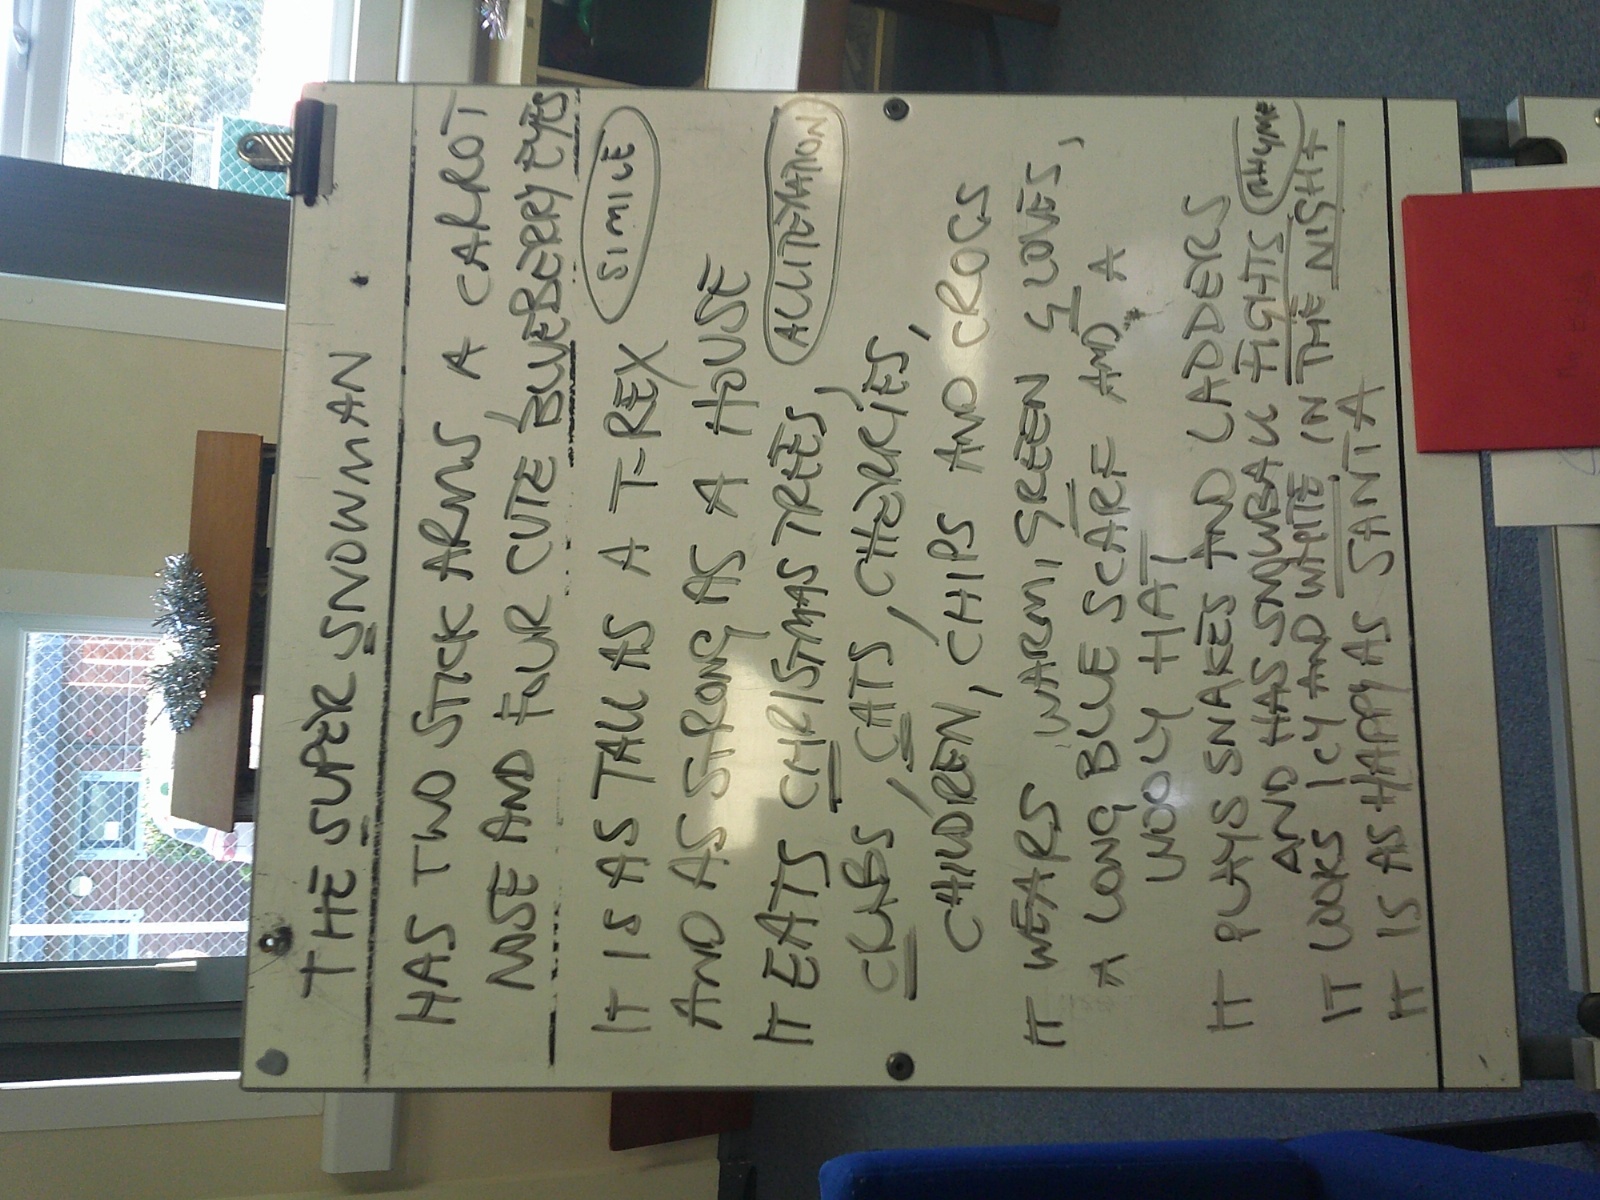 THE SUPER SNOWMAN
HAS TWO STICK ARMS A CARROT
NOSE AND FOUR CUTE BLUEBERRY EYES
SIMILE
IT IS AS TALL AS A T-REX
AND AS STRONG AS A HOUSE
ALLITERATION
IT EATS CHRISTMAS TREES,
CRABS, CATS, CHERRIES,
CHILDREN, CHIPS AND CROCS
IT WEARS WARM GREEN GLOVES,
A LONG BLUE SCARF AND A
WOOLY HAT
IT PLAYS SNAKES AND LADDERS
RHYME
AND HAS SNOWBALL FIGHTS
AND
IT LOOKS ICY AND WHITE IN THE NIGHT
IT IS AS HAPPY AS SANTA